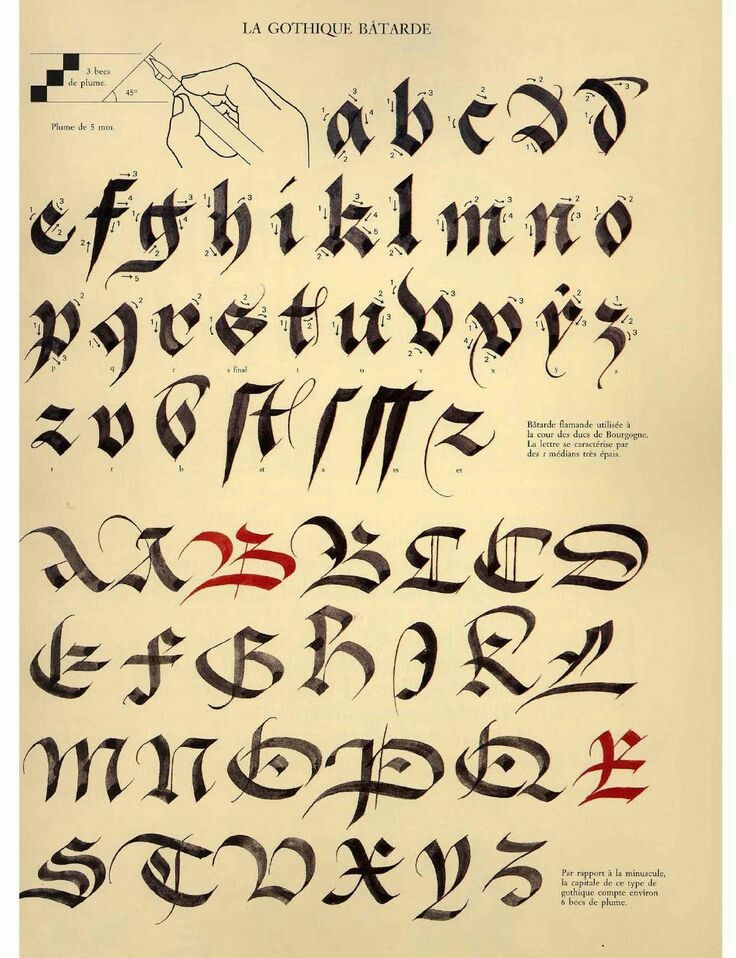 LA GOTHIQUE BÂTARDE
3 becs
de plume.
45°
Plume de 5 mm.
a b c d d
e f g h i k l m n o
p q r s t u v x ÿ z
p q r s final t u v x y z
r r b ſt ſ ſſ et
r r b st s ss et
Bâtarde flamande utilisée à
la cour des ducs de Bourgogne.
La lettre se caractérise par
des s médians très épais.
A A B B C C D
E F G H I K L
M N O P Q R
S T V X Y Z
Par rapport à la minuscule,
la capitale de ce type de
gothique compte environ
6 becs de plume.